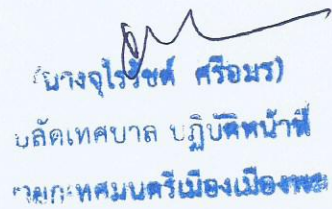 (นางจุไรวัชต์ ศรีอมร)
ปลัดเทศบาล ปฏิบัติหน้าที่
นายกเทศมนตรีเมืองเมือง